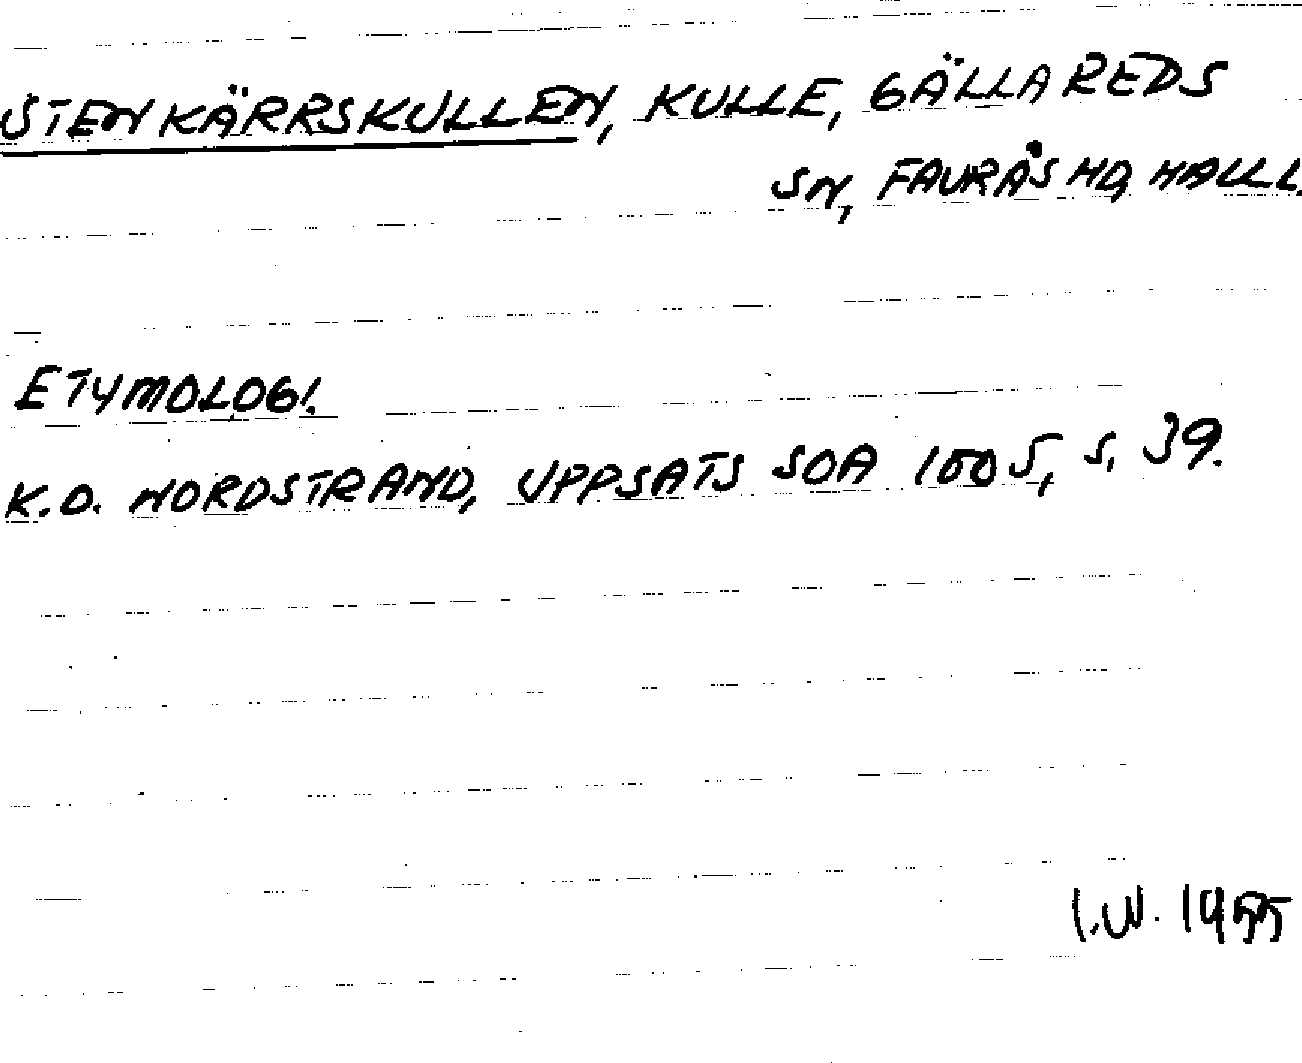 STENKÄRRSKULLEN, KULLE, GÄLLAREDS
SN, FAURÅS HD, HALL.
ETYMOLOGI.
K.O. NORDSTRAND, UPPSATS SOA 1005, S. 39.
I.W. 1955